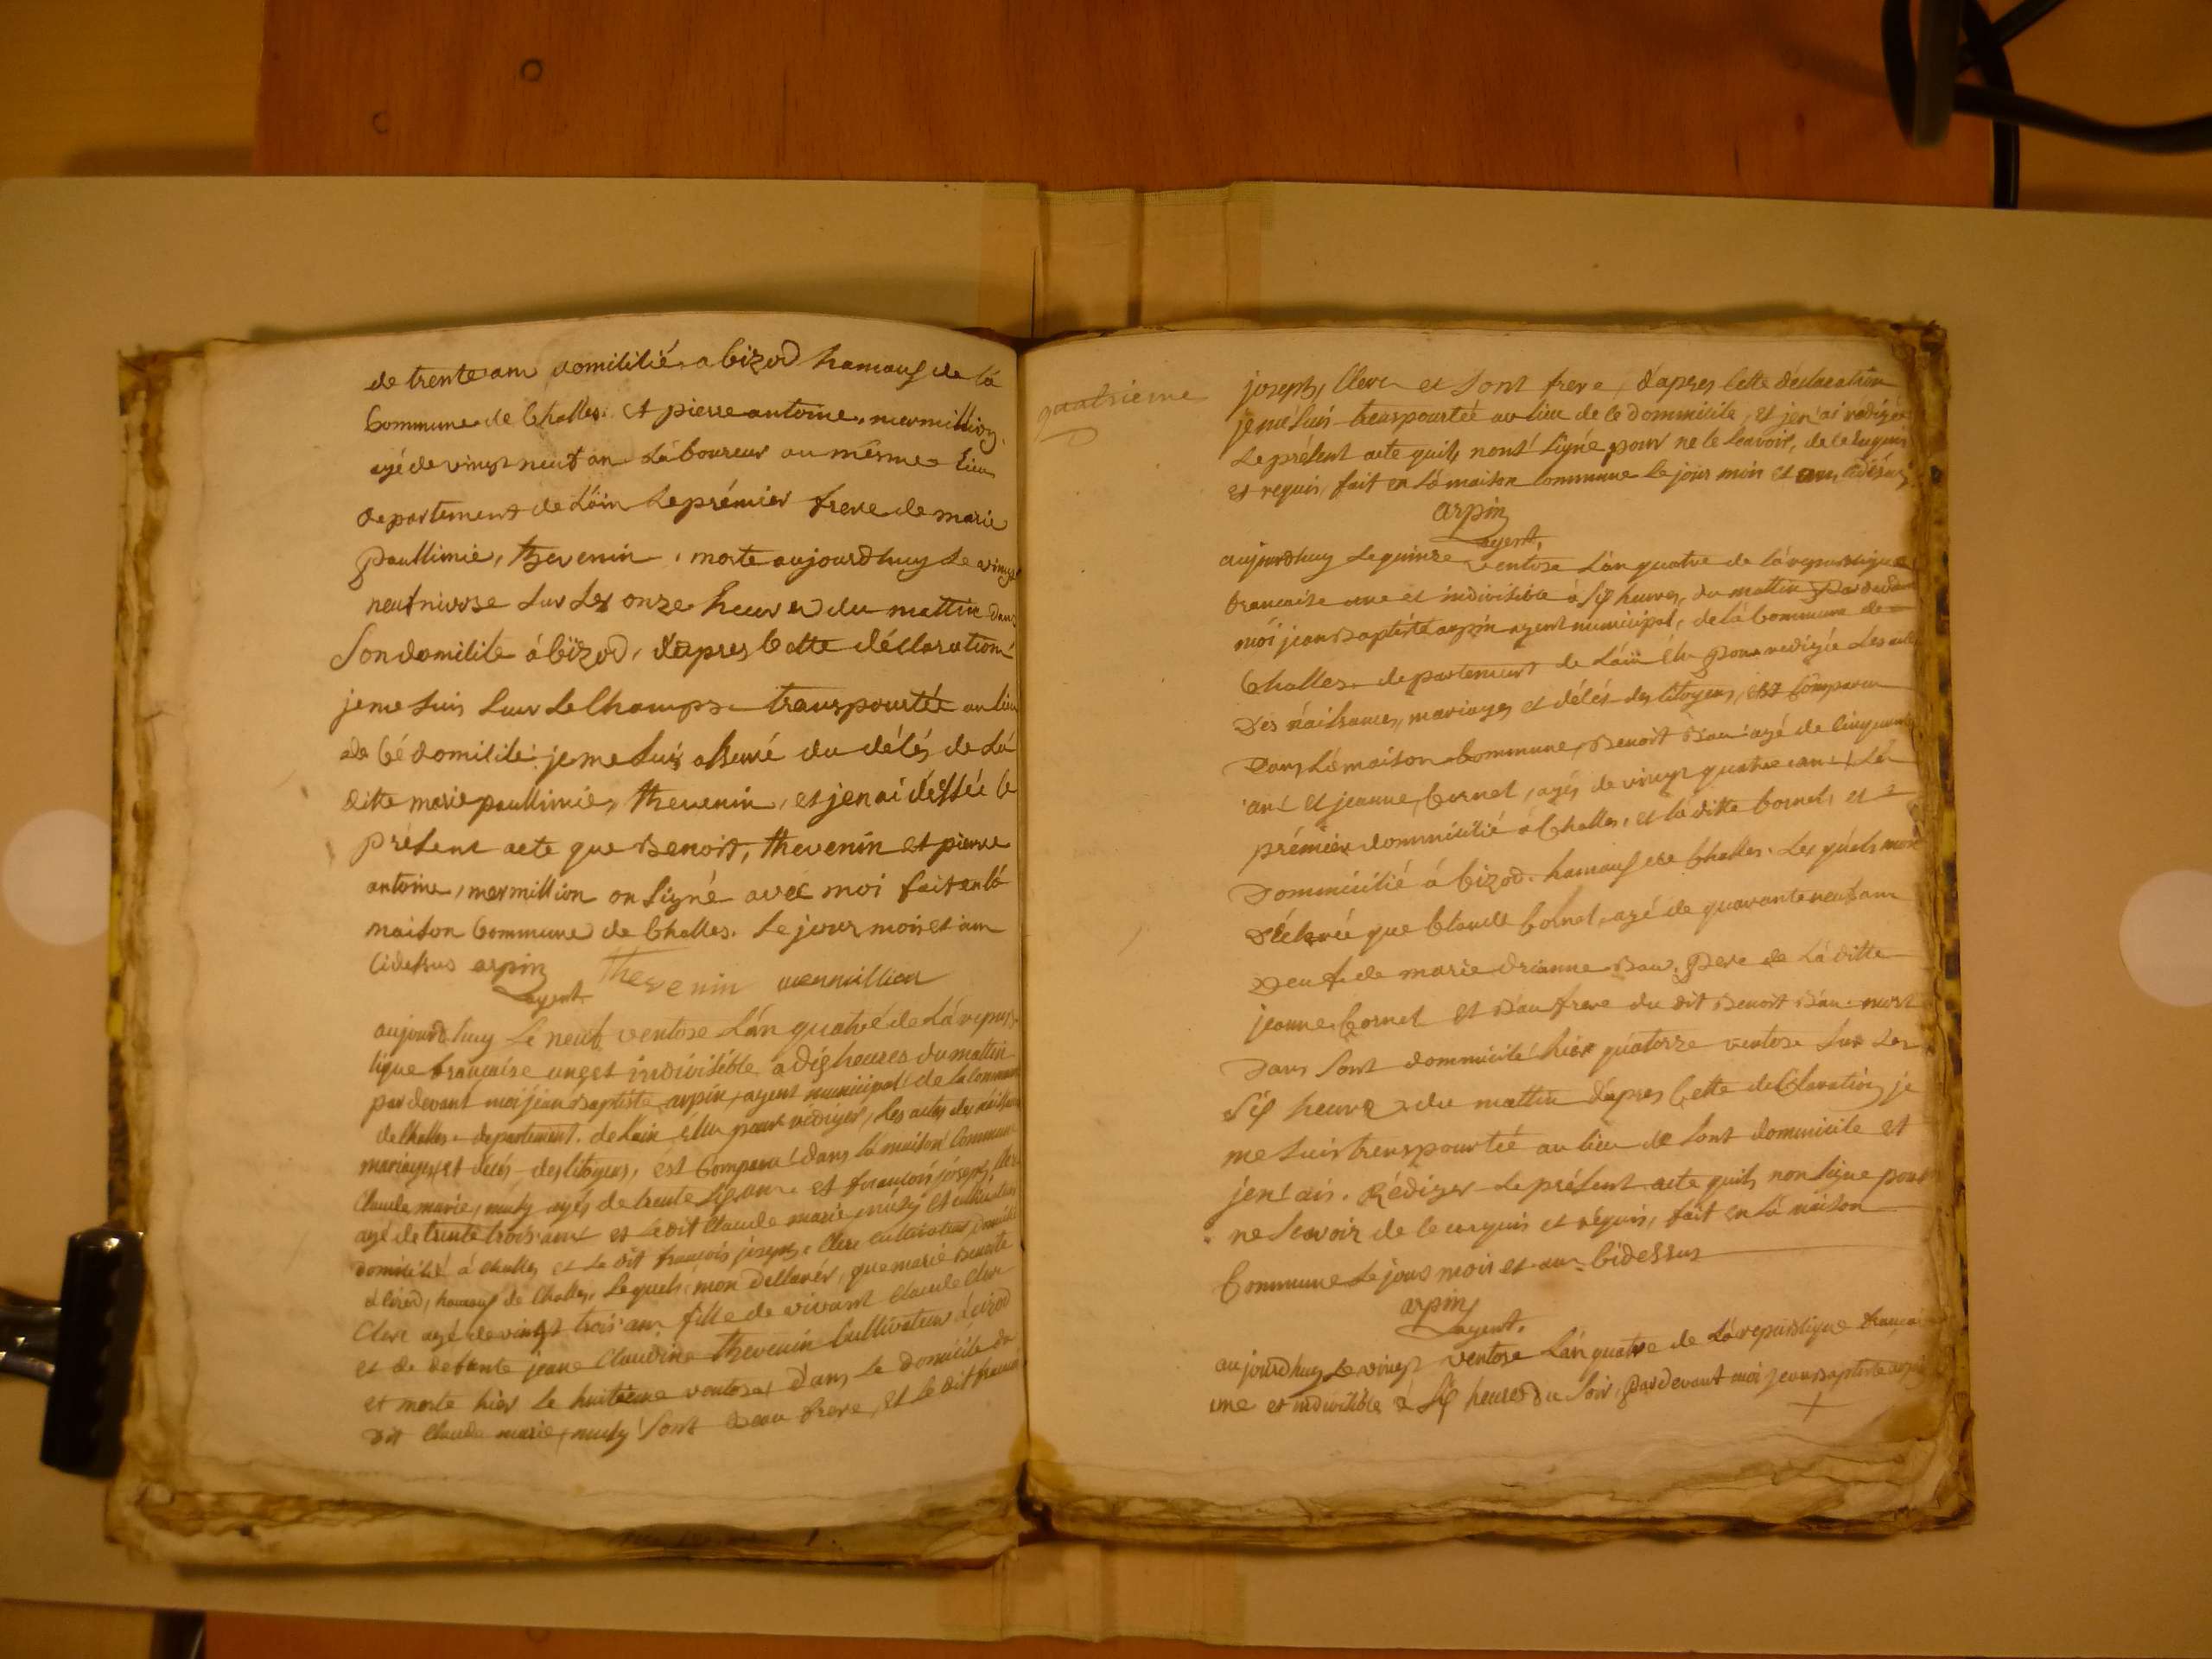 de trente ans domililié a bizod hamauf de la
Commune de Challes. et pierre antoine, mermillion,
agé de vingt neuf an Laboureur au mésme Lieu
departement de Láin Le prémier frere de marie
paullinie, thevenin, morte aujourdhuy Le vingt
neuf nivose Sur Les onze heures du mattin dans
Son domilile á bizod, dapres cette déclaration
je me Suis Sur Le Champs transpourtée au lieu
de Cé domilile je me Suis assuré du délés de Lá
ditte marie paullinie, thevenin, et jen ai dressée le
présent acte que Benoit, thevenin et pierre
antoine, mermillion on Signé avec moi fait en lá
maison Commune de Challes. Le jour mois et an
Cidessus arpin Thevenin mermillion
agent
aujourdhuy Le neuf ventose Lán quatré de Lá repub-
lique francaise une et indivisible a dix heures du mattin
par devant moi jean Baptiste arpin, agent municipal de la Commune
de Challes. departement. de Lain élu pour rediger, Les actes des naissances
mariages et décés des Citoyens, est Comparu dans lá maison Commune
Claude marie, muty agés de trente Six ans et francois joseph, Clerc
agé de trente trois ans et Le dit Claude marie, muty et cultivateur
domicilié á Challes et Le dit francois joseph, Clerc cultivateur domicilié
á bizod, hamauf de Challes, Lequels mon dellarér, que marie Benoite
Clerc agé de vingt trois an fille de vivant Claude Clerc
et de defunte jeane Claudine thevenin Cultivateur á bizod
et morte hier Le huitieme ventose dans Le domicile du
dit Claude marie, muty Sont Beau frere, et Le dit francois
quatrieme
joseph, Clerc et Sont frere, dápres Cette declaration
je mé Suis transpourtée au lieu de Ce dommicile, et jen ai redigée
Le présent acte quils nont Signé pour ne le Scavoir, de Ce enquis
et requis, fait en Lá maison Commune Le jour mois et an Cidesus
arpin
agent.
aujourdhuy Le quinze ventose Lán quatre de lá republique
francaise une et indivisible á Six heures, du mattin Par devant
mói jean Baptiste arpin agent municipal, de lá Commune de
Challes departement de Láin élu Pour redigée Les actes
Des náissances, mariages et délés des Citoyens, est Comparu
Dans Lá maison Commune, Benoit Bau agé de Cinquante
ans et jeanne, Cornet, agés de vingt quatre ans, Le
prémier dommicilié á Challes, et lá ditte Cornet, et
Dommicilié á bizod. hamauf de Challes. Les quels mon
Déclarée que Claude Cornet, agé de quarante neuf ans
veuf de marie Brianne Bau. Pere de Lá ditte
jeanne, Cornet et Bau frere du dit Benoit Bau. mort
Dans Sont dommicile hier quatorze ventose Sur Les
Six heures du mattin dápres Cette declaration, je
me Suis transpourtée au lieu de Sont dommicile et
jen ais. Rédiger Le présent acte quils non Signe pour
ne Scavoir de Ce enquis et réquis, fait en Lá maison
Commune Le jour mois et an Cidessus
arpin
agent.
aujourdhuy Le vingt ventose Lán quatre de Lá republique francaise
une et indivisible á Six heures du Soir, Par devant moi jean Baptiste arpin